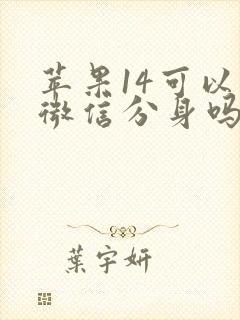 苹果14可以
微信分身吗
葉宇妍